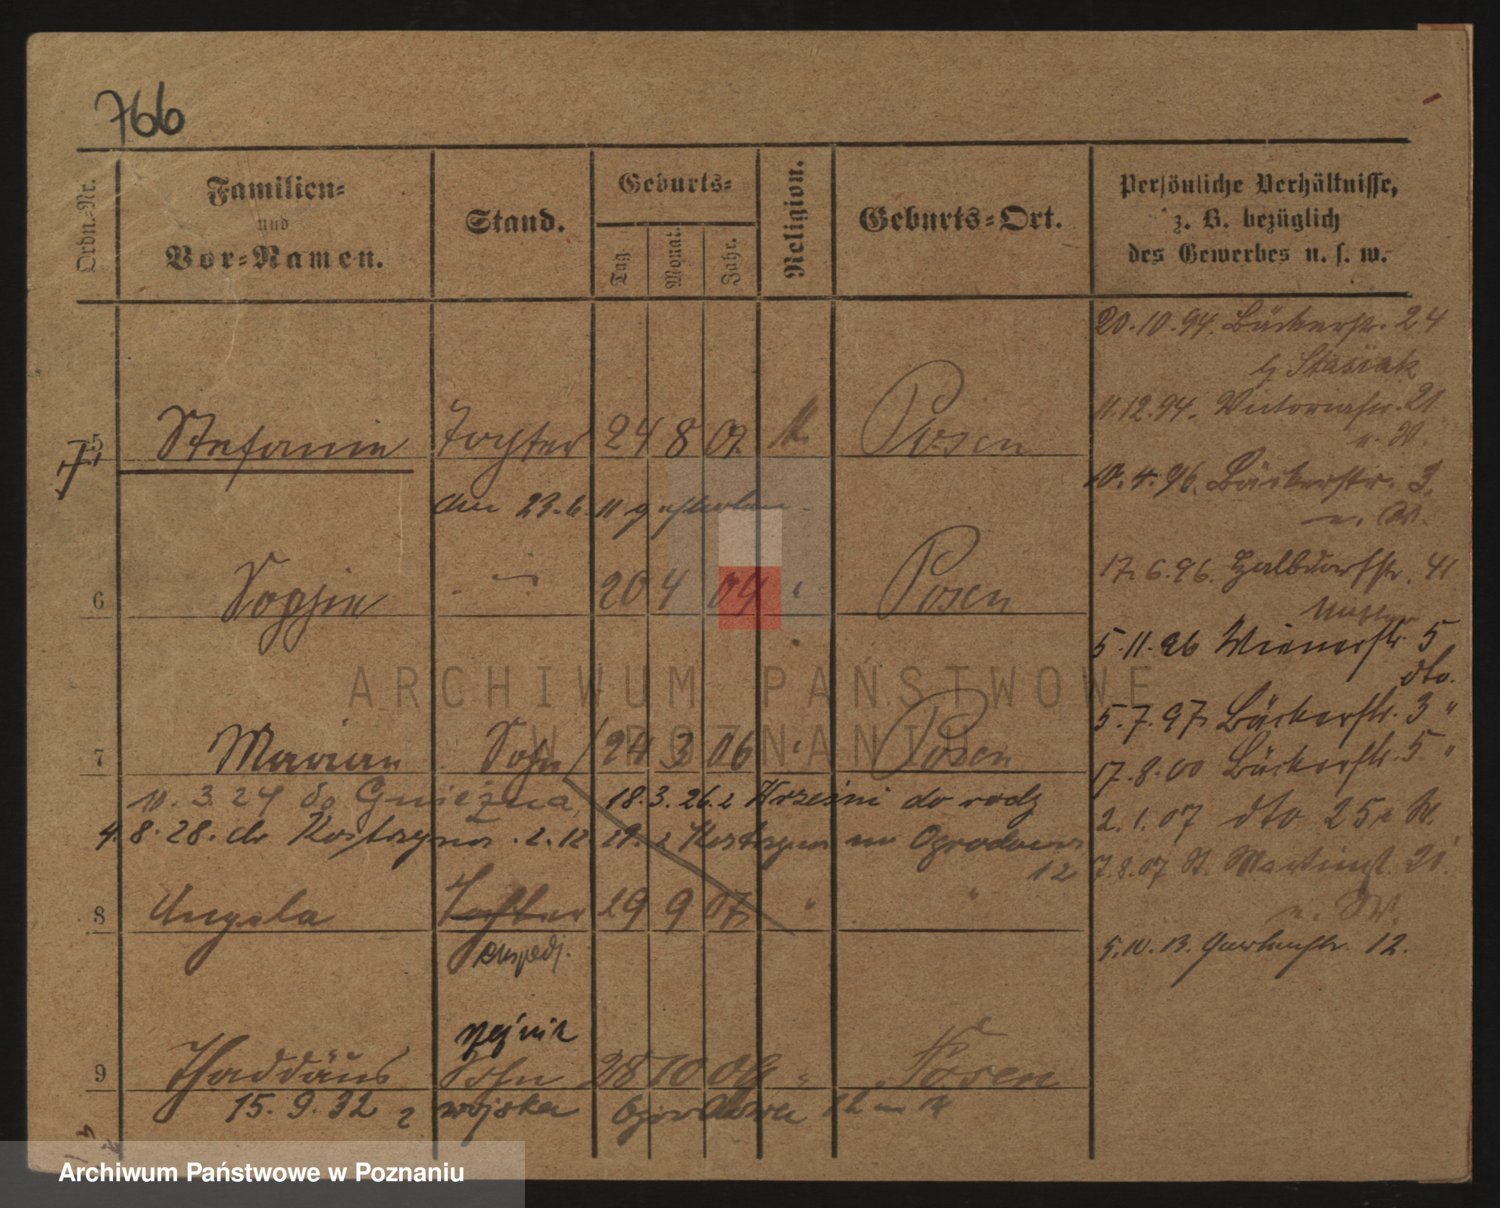 766
Ordn.-Nr.
Familien-
und
Vor-Namen.
Stand.
Geburts-
Tag.
Monat.
Jahr.
Religion.
Geburts-Ort.
Persönliche Verhältnisse,
z. B. bezüglich
des Gewerbes u. s. w.
20.10.94. Bäckerstr. 24
b/ Stasiak
11.12.94. Victoriastr. 21
u. W.
10.4.96. Bäckerstr. 3.
u. W.
17.6.96. Halbdorfstr. 41
5.11.96 Wienerstr. 5
dto.
5.7.97 Bäckerstr. 3 "
17.8.00 Bäckerstr. 5 "
2.1.07 dto 25 W.
7.8.07 St. Martinst. 21.
u. W.
5.10.13. Gartenstr. 12.
5 Stefanie Tochter 24 8 02 Posen
den 23.6.11 gestorben.
6 Sophie 20 4 04 " Posen
7 Marian Sohn 24 3 06 " Posen
11.3.24 do Gniezna, 18.3.26 z Wrześni do rodz
4.8.28. do Kostrzyna. 2.12.29. z Kostrzyna na Ogrodowa
12
8 Angela Tochter 29 9 07 " "
ekspedj.
9 Thaddäus Sohn 28 10 09 " Posen
15.9.32 z wojska Ogrodowa 12 m 14
ARCHIWUM PAŃSTWOWE
W POZNANIU
Archiwum Państwowe w Poznaniu